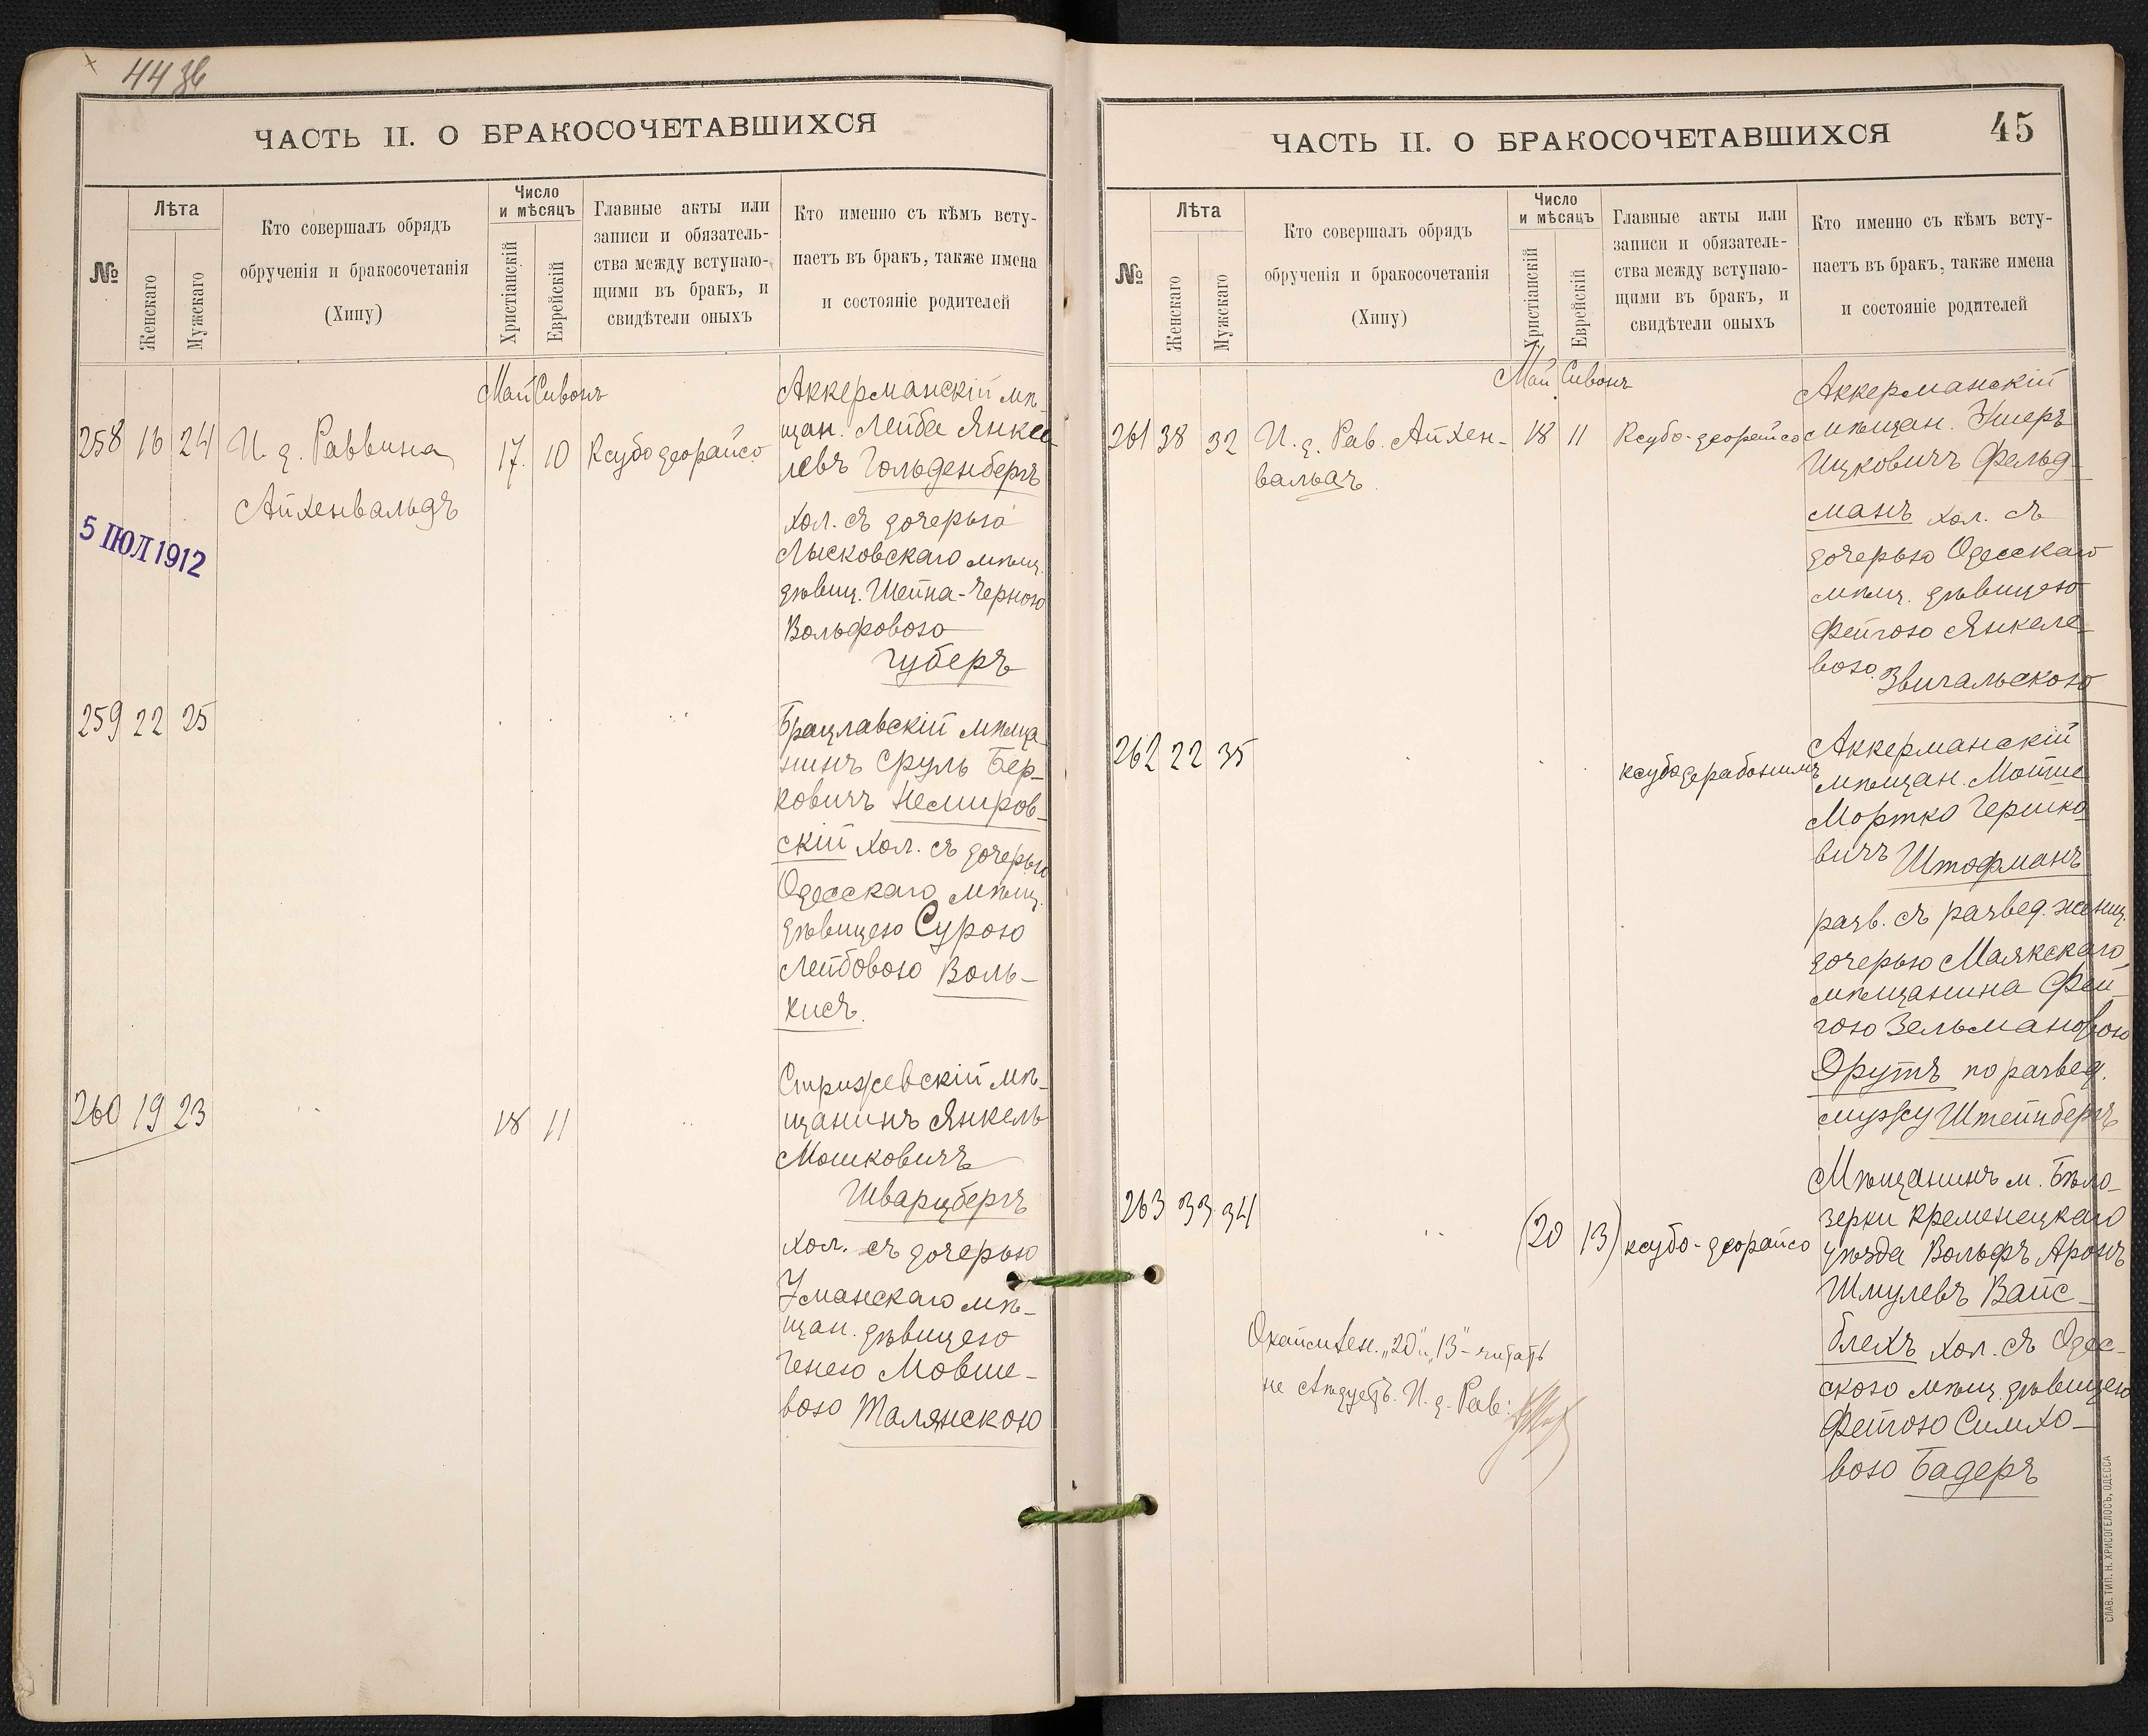 44 об
ЧАСТЬ II. О БРАКОСОЧЕТАВШИХСЯ
№
Лѣта
Женскаго
Мужскаго
Кто совершалъ обрядъ
обрученія и бракосочетанія
(Хипу)
Число
и мѣсяцъ
Христіанскій
Еврейскій
Главные акты или
записи и обязатель-
ства между вступаю-
щими въ бракъ, и
свидѣтели оныхъ
Кто именно съ кѣмъ всту-
паетъ въ бракъ, также имена
и состояніе родителей
Май Сивонъ
258 16 24 И. д. Раввина
Айхенвальдъ
17. 10 Ксубо деорайсо
Аккерманскій мѣ-
щан. Лейба Янке-
левъ Гольденбергъ
хол. съ дочерью
Лысковскаго мѣщ.
дѣвиц. Шейна-Черною
Вольфовою
Губеръ
5 ІЮЛ 1912
259 22 25
Брацлавскій мѣща-
нинъ Сруль Бер-
ковичъ Немиров-
скій хол. съ дочерью
Одесскаго мѣщ.
дѣвицею Сурою
Лейбовою Воль-
кисъ.
260 19 23 18 11
Стрижевскій мѣ-
щанинъ Янкель
Мошковичъ
Шварцбергъ
хол. съ дочерью
Уманскаго мѣ-
щан. дѣвицею
Генею Мовше-
вою Талянскою
45
ЧАСТЬ II. О БРАКОСОЧЕТАВШИХСЯ
№
Лѣта
Женскаго
Мужскаго
Кто совершалъ обрядъ
обрученія и бракосочетанія
(Хипу)
Число
и мѣсяцъ
Христіанскій
Еврейскій
Главные акты или
записи и обязатель-
ства между вступаю-
щими въ бракъ, и
свидѣтели оныхъ
Кто именно съ кѣмъ всту-
паетъ въ бракъ, также имена
и состояніе родителей
Май Сивонъ
261 38 32 И. д. Рав. Айхен-
вальдъ.
18 11 Ксубо-деорайсо
Аккерманскій
мѣщан. Ушеръ
Ицковичъ Фельд-
манъ хол. съ
дочерью Одесскаго
мѣщ. дѣвицею
Фейгою Янкеле-
вою Звигальскою
262 22 35
ксубо дерабонимъ
Аккерманскій
мѣщан. Мойше
Мортко Гершко-
вичъ Штофманъ
разв. съ развед. женщ.
дочерью Маякскаго
мѣщанина Фей-
гою Зельмановою
Друтъ по развед.
мужу Штейнбергъ
263 33 34 (20 13) ксубо-деорайсо
Мѣщанинъ м. Бѣло-
зерки Кременецкаго
уѣзда Вольфъ Аронъ
Шмулевъ Вайс-
блехъ хол. съ Одес-
скою мѣщ. дѣвицею
Фейгою Симхо-
вою Бадеръ
„20" и „13" - читать
не слѣдуетъ. И. д. Рав:
СЛАВ. ТИП. Н. ХРИСОГЕЛОСЪ, ОДЕССА